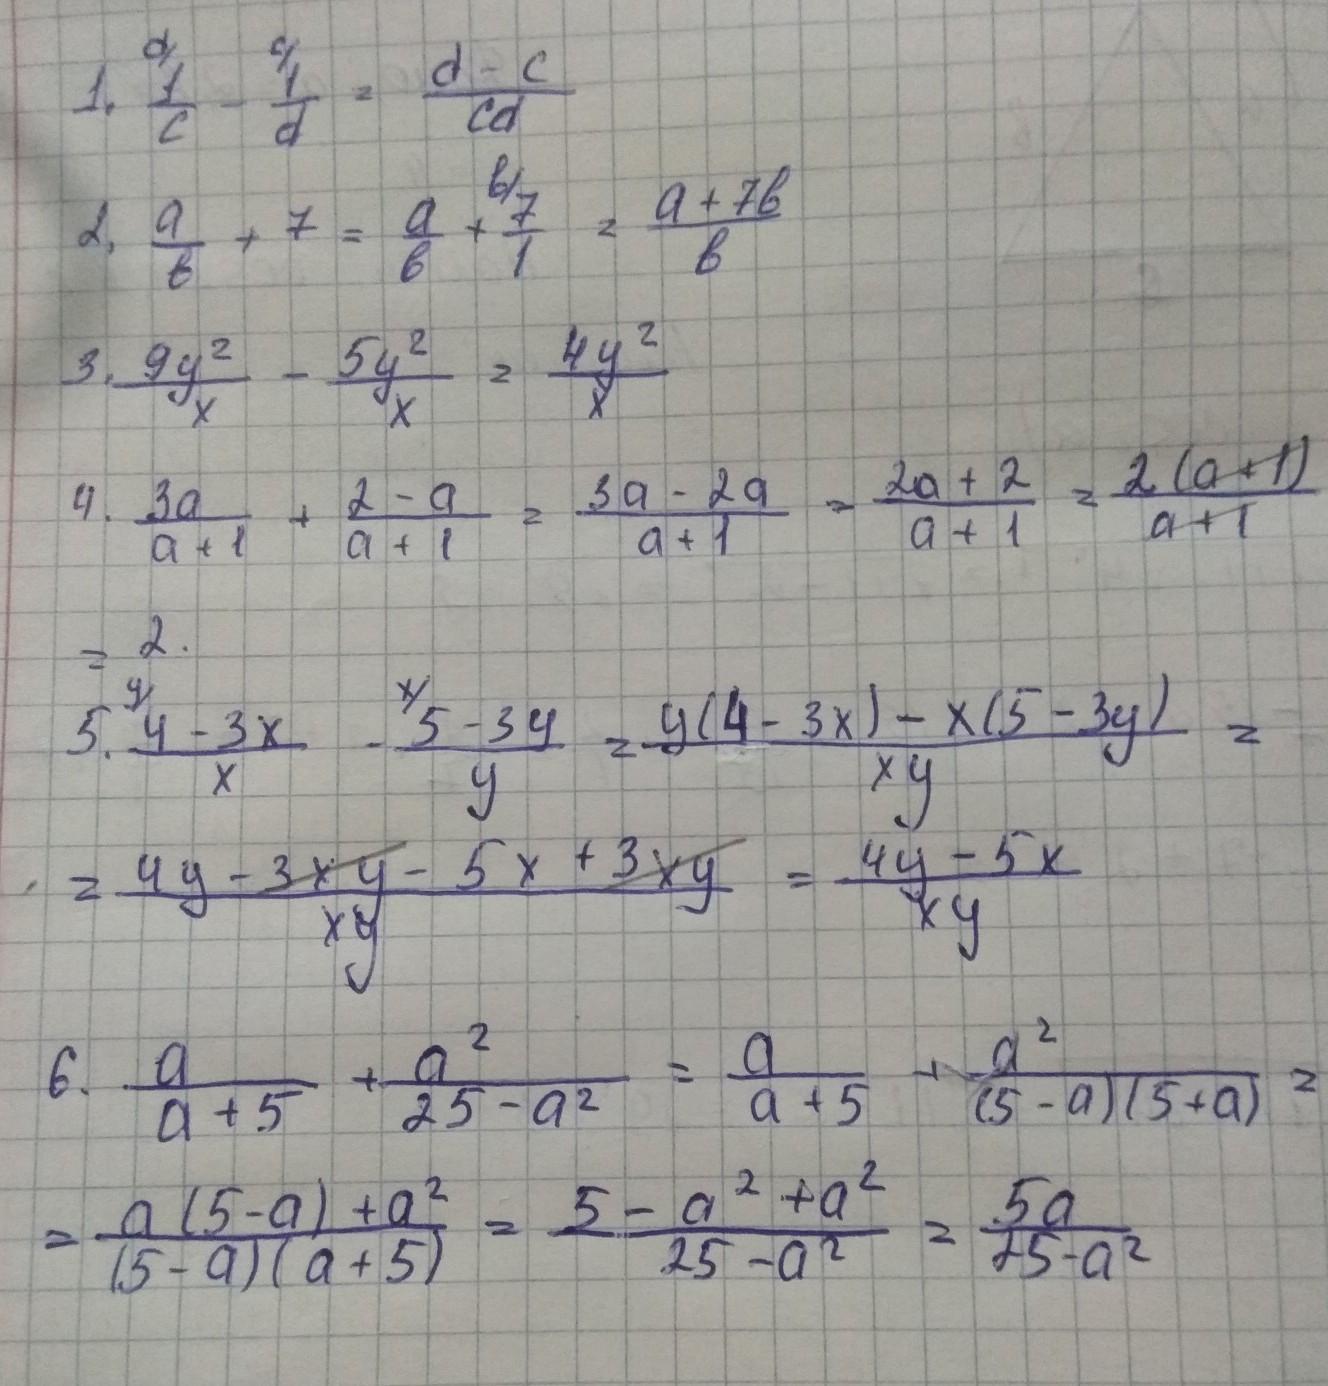 1. d/ 1/c - c/ 1/d = (d - c)/(cd)
2. a/b + 7 = a/b + b/ 7/1 = (a + 7b)/b
3. 9y²/x - 5y²/x = 4y²/x
4. 3a/(a + 1) + (2 - a)/(a + 1) = (3a - 2a)/(a + 1) = (2a + 2)/(a + 1) = 2(a + 1)/(a + 1)
= 2.
5. y/ (4 - 3x)/x - x/ (5 - 3y)/y = (y(4 - 3x) - x(5 - 3y))/(xy) =
= (4y - 3xy - 5x + 3xy)/(xy) = (4y - 5x)/(xy)
6. a/(a + 5) + a²/(25 - a²) = a/(a + 5) + a²/((5 - a)(5 + a)) =
= (a(5 - a) + a²)/((5 - a)(a + 5)) = (5 - a² + a²)/(25 - a²) = 5a/(25 - a²)